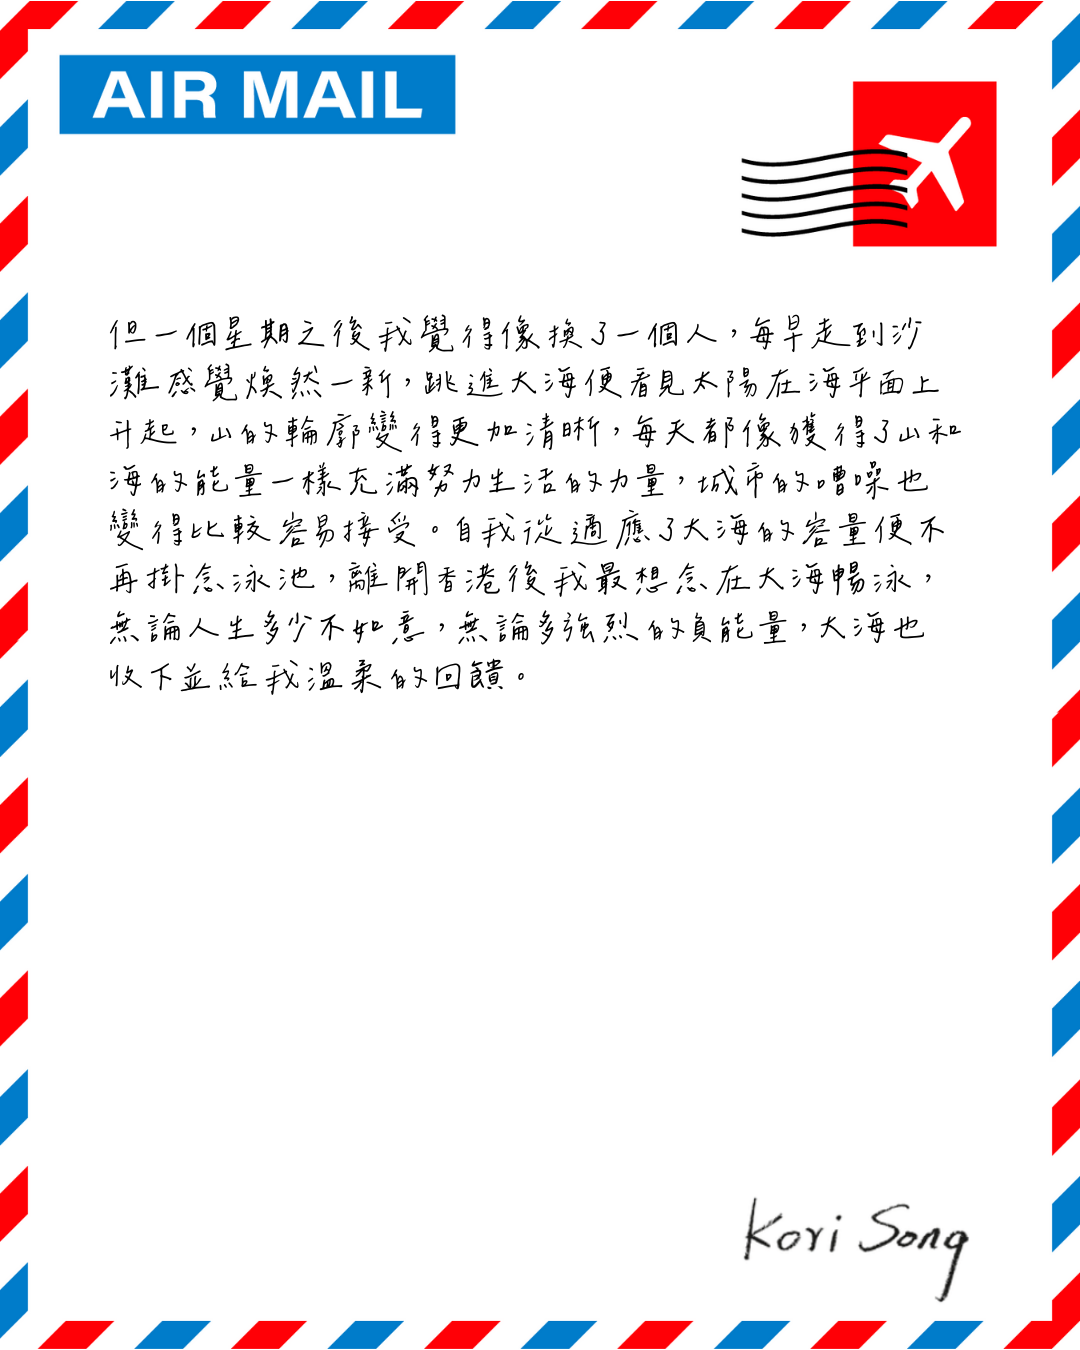 AIR MAIL
但一個星期之後我覺得像換了一個人，每早走到沙
灘感覺煥然一新，跳進大海便看見太陽在海平面上
升起，山的輪廓變得更加清晰，每天都像獲得了山和
海的能量一樣充滿努力生活的力量，城市的嘈噪也
變得比較容易接受。自我從適應了大海的容量便不
再掛念泳池，離開香港後我最想念在大海暢泳，
無論人生多少不如意，無論多強烈的負能量，大海也
收下並給我溫柔的回饋。
Kori Song